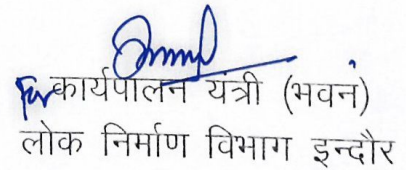 For कार्यपालन यंत्री (भवन)
लोक निर्माण विभाग इन्दौर